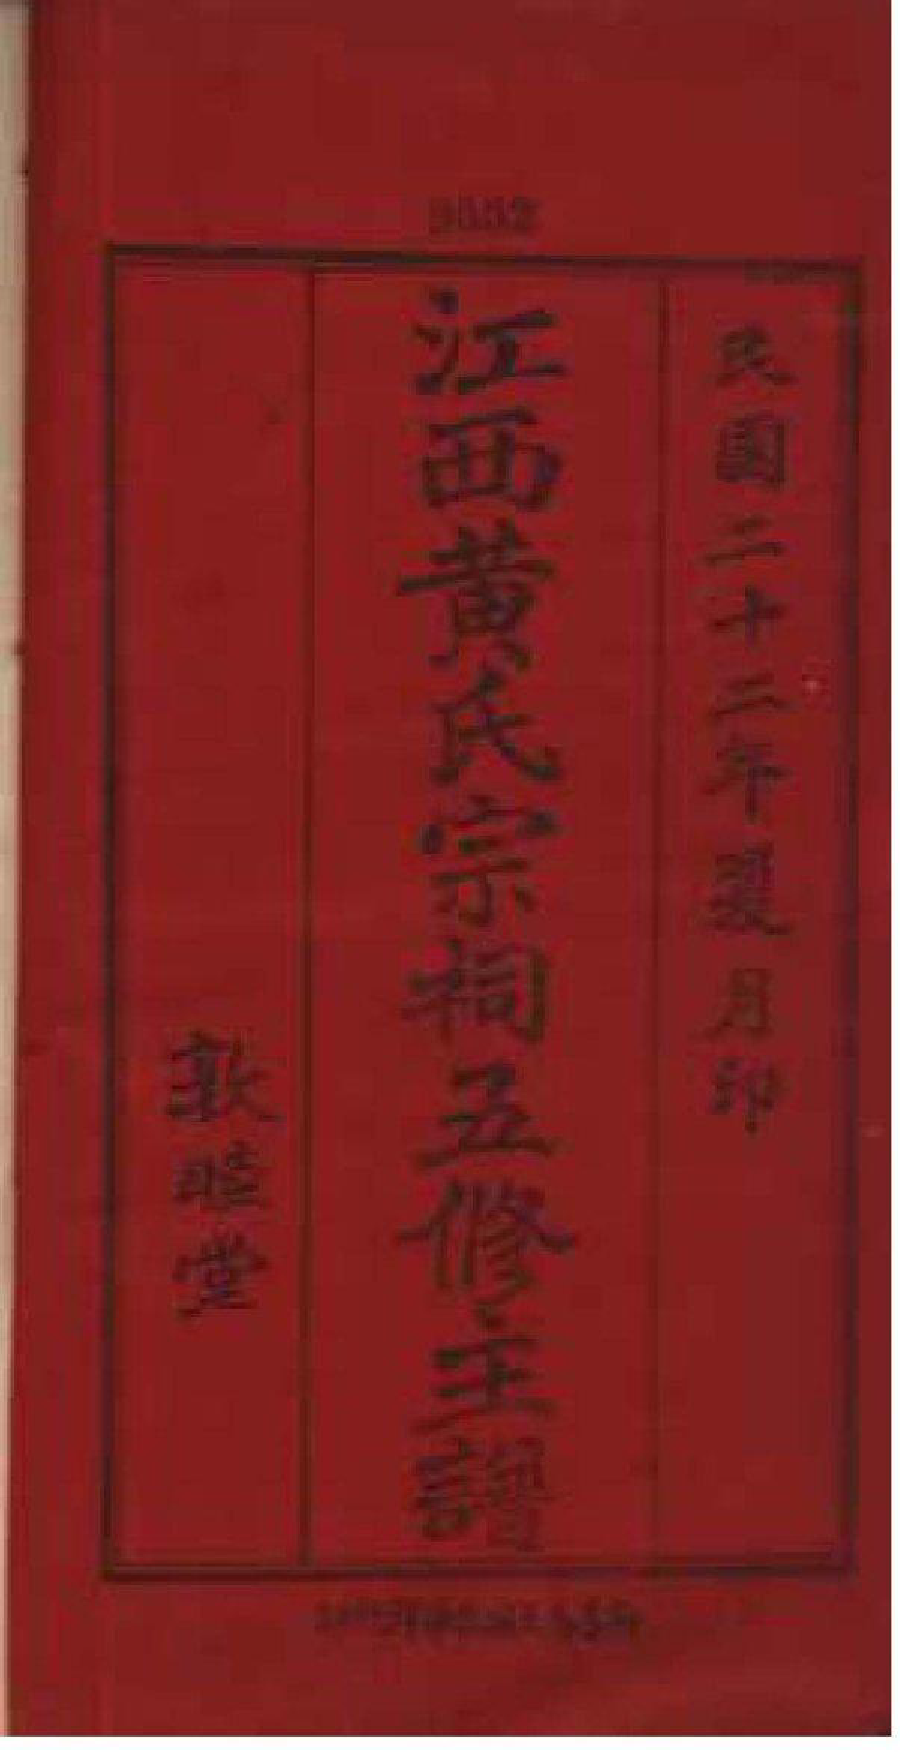 民國二十二年夏月印
江西黃氏宗祠五修主譜
敦睦堂